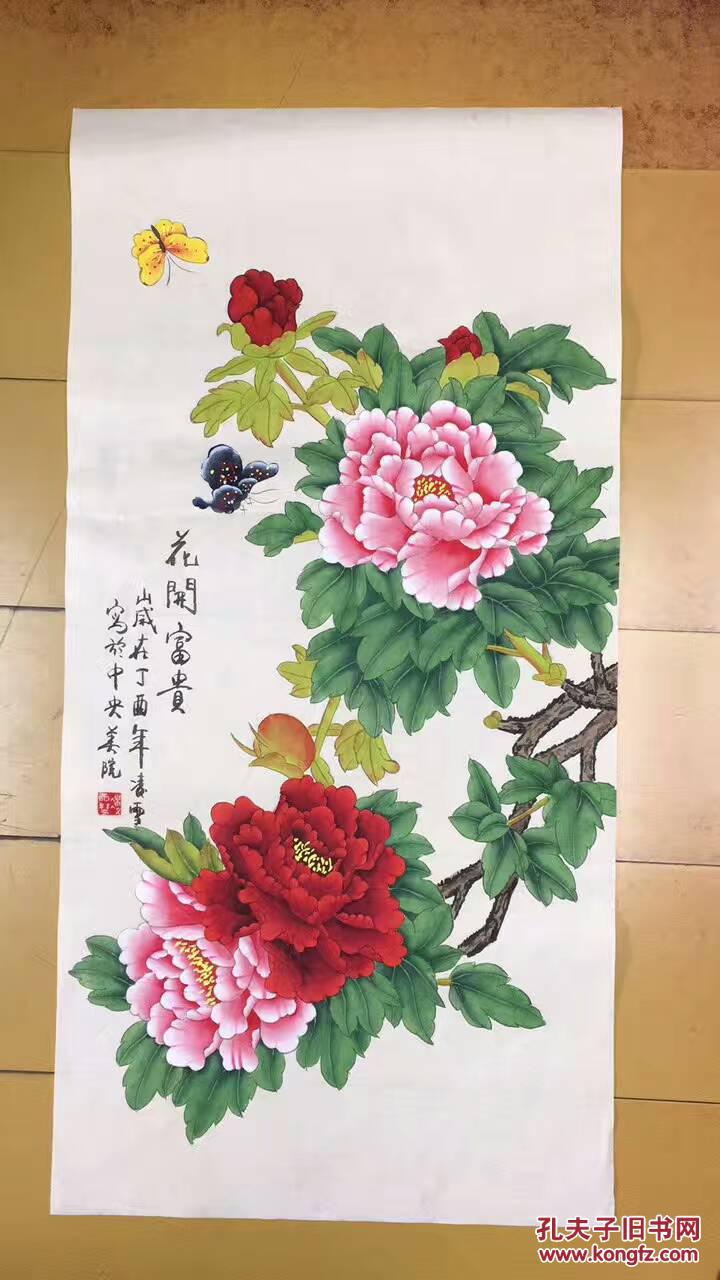 花開富貴
山威在丁酉年凌雪
寫於中央美院
孔夫子旧书网
www.kongfz.com